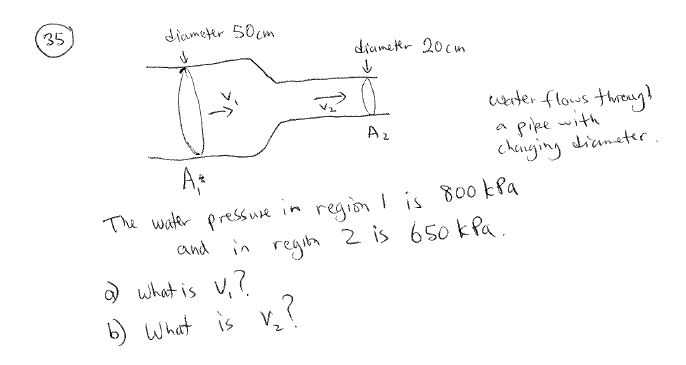 35
diameter 50cm
diameter 20cm
V₁
V₂
A₁
A₂
water flows through
a pipe with
changing diameter.
The water pressure in region 1 is 800 kPa
and in region 2 is 650 kPa.
a) what is V₁?
b) What is V₂?